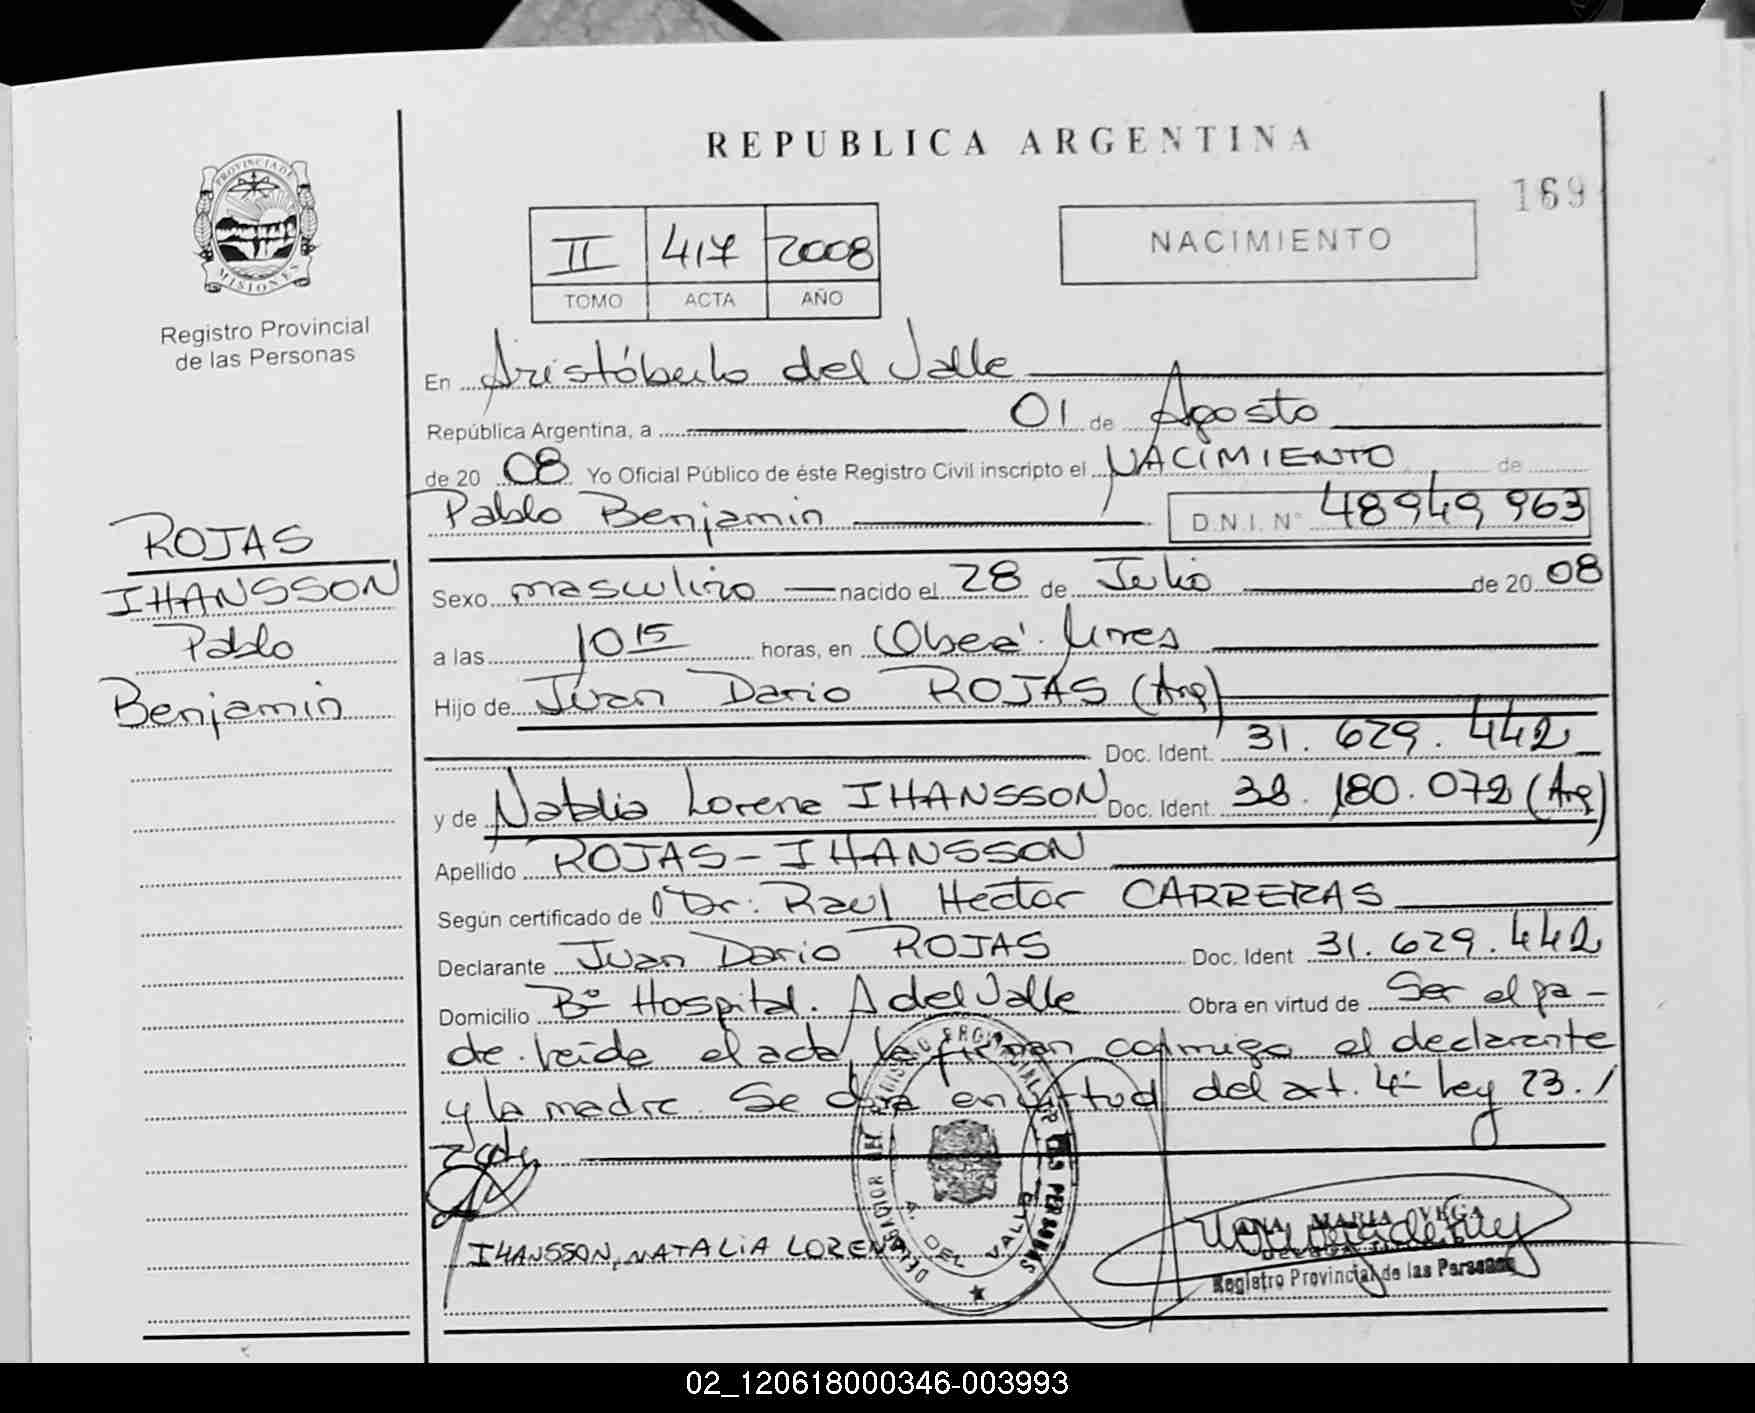 REPUBLICA ARGENTINA
169
PROVINCIA DE MISIONES
Registro Provincial
de las Personas
II 417 2008
TOMO ACTA AÑO
NACIMIENTO
En Aristóbulo del Valle
República Argentina, a 01 de Agosto
de 20 08 Yo Oficial Público de éste Registro Civil inscripto el NACIMIENTO de
Pablo Benjamin D.N.I. N° 48949963
ROJAS
IHANSSON
Pablo
Benjamin
Sexo masculino nacido el 28 de Julio de 20 08
a las 10 15 horas, en Oberá
Hijo de Juan Dario ROJAS (Arg)
Doc. Ident. 31.629.442
y de Natalia Lorena IHANSSON Doc. Ident. 38.180.072 (Arg)
Apellido ROJAS-IHANSSON
Según certificado de Dr: Raul Hector CARRERAS
Declarante Juan Dario ROJAS Doc. Ident 31.629.442
Domicilio Bº Hospital. A del Valle Obra en virtud de Ser el pa-
de. leida el acta la firman conmigo el declarante
y la madre. Se en virtud del art. 4º ley 23./
IHANSSON, NATALIA LORENA
A. DEL VALLE
ANA MARIA VEGA
Registro Provincial de las Personas
02_120618000346-003993